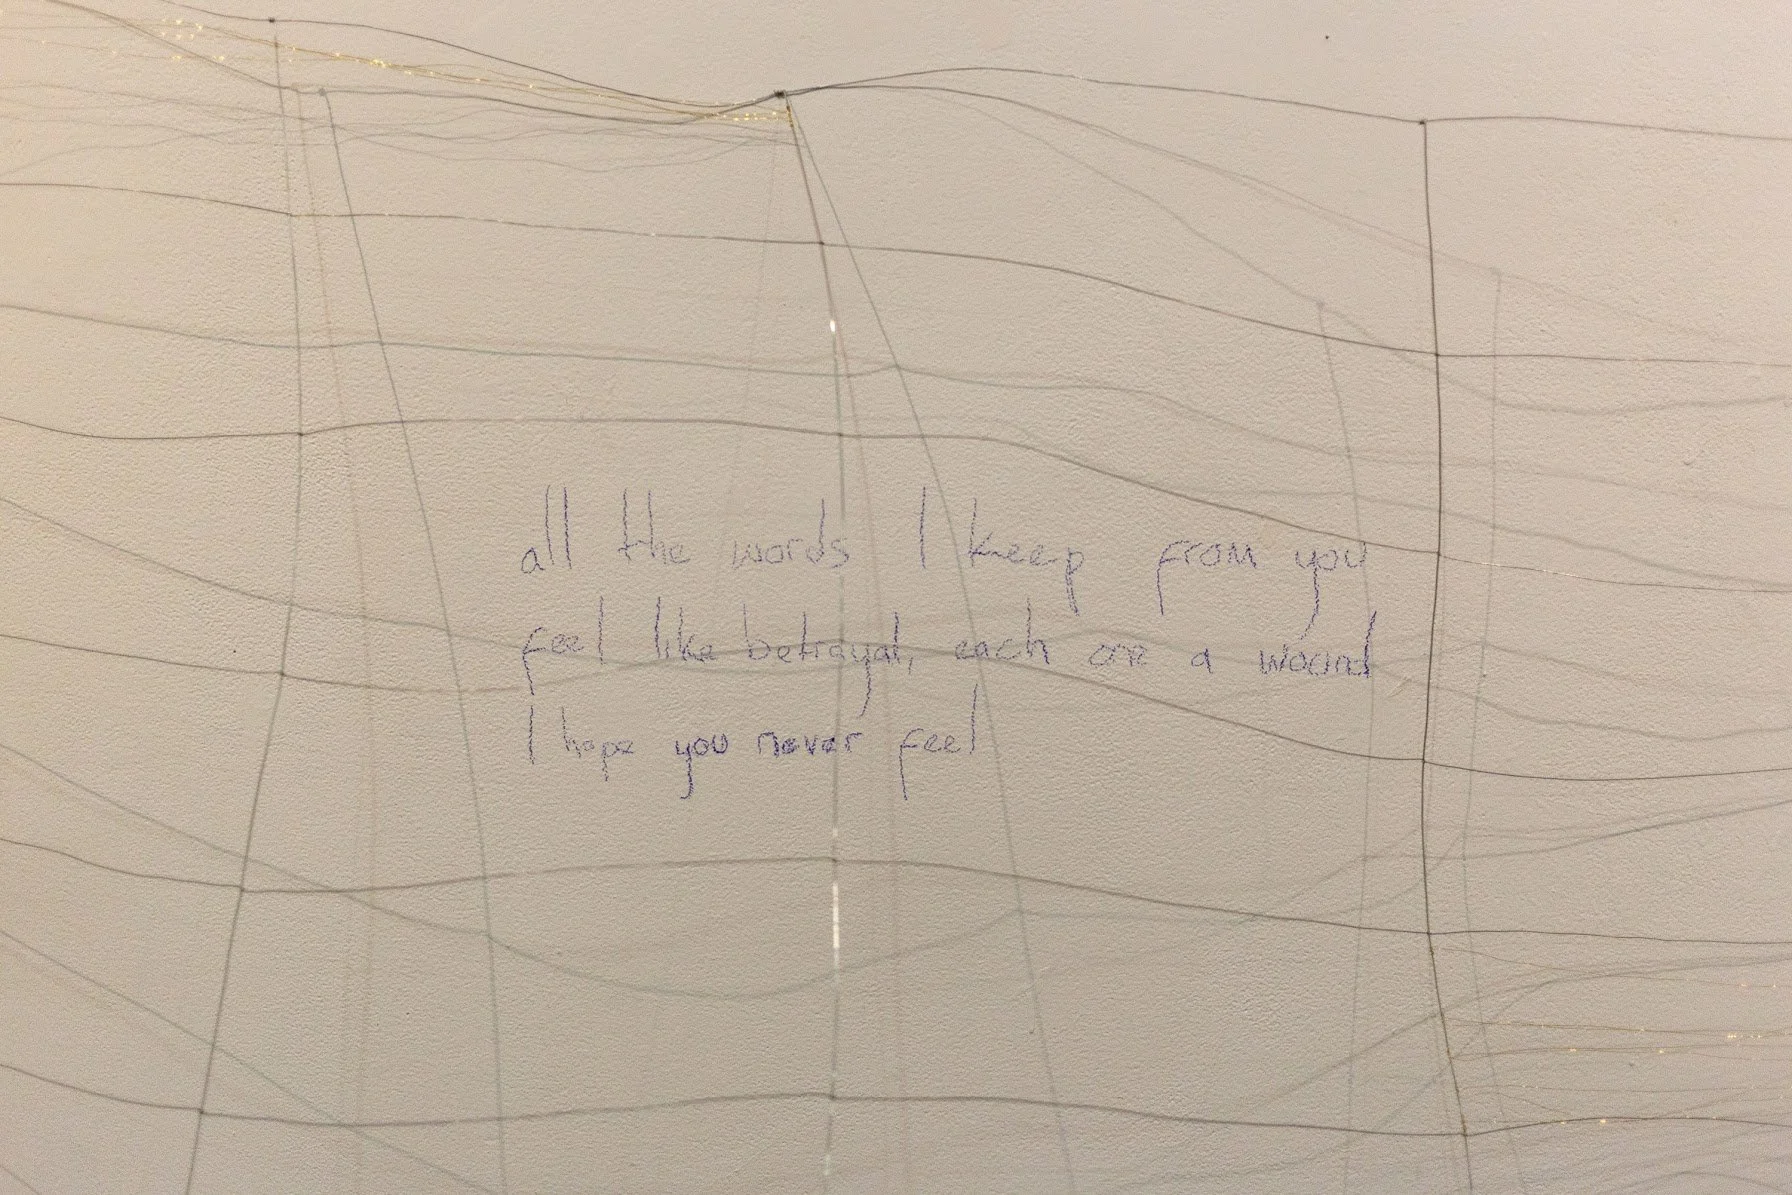 all the words I keep from you
feel like betrayal, each one a wound
I hope you never feel